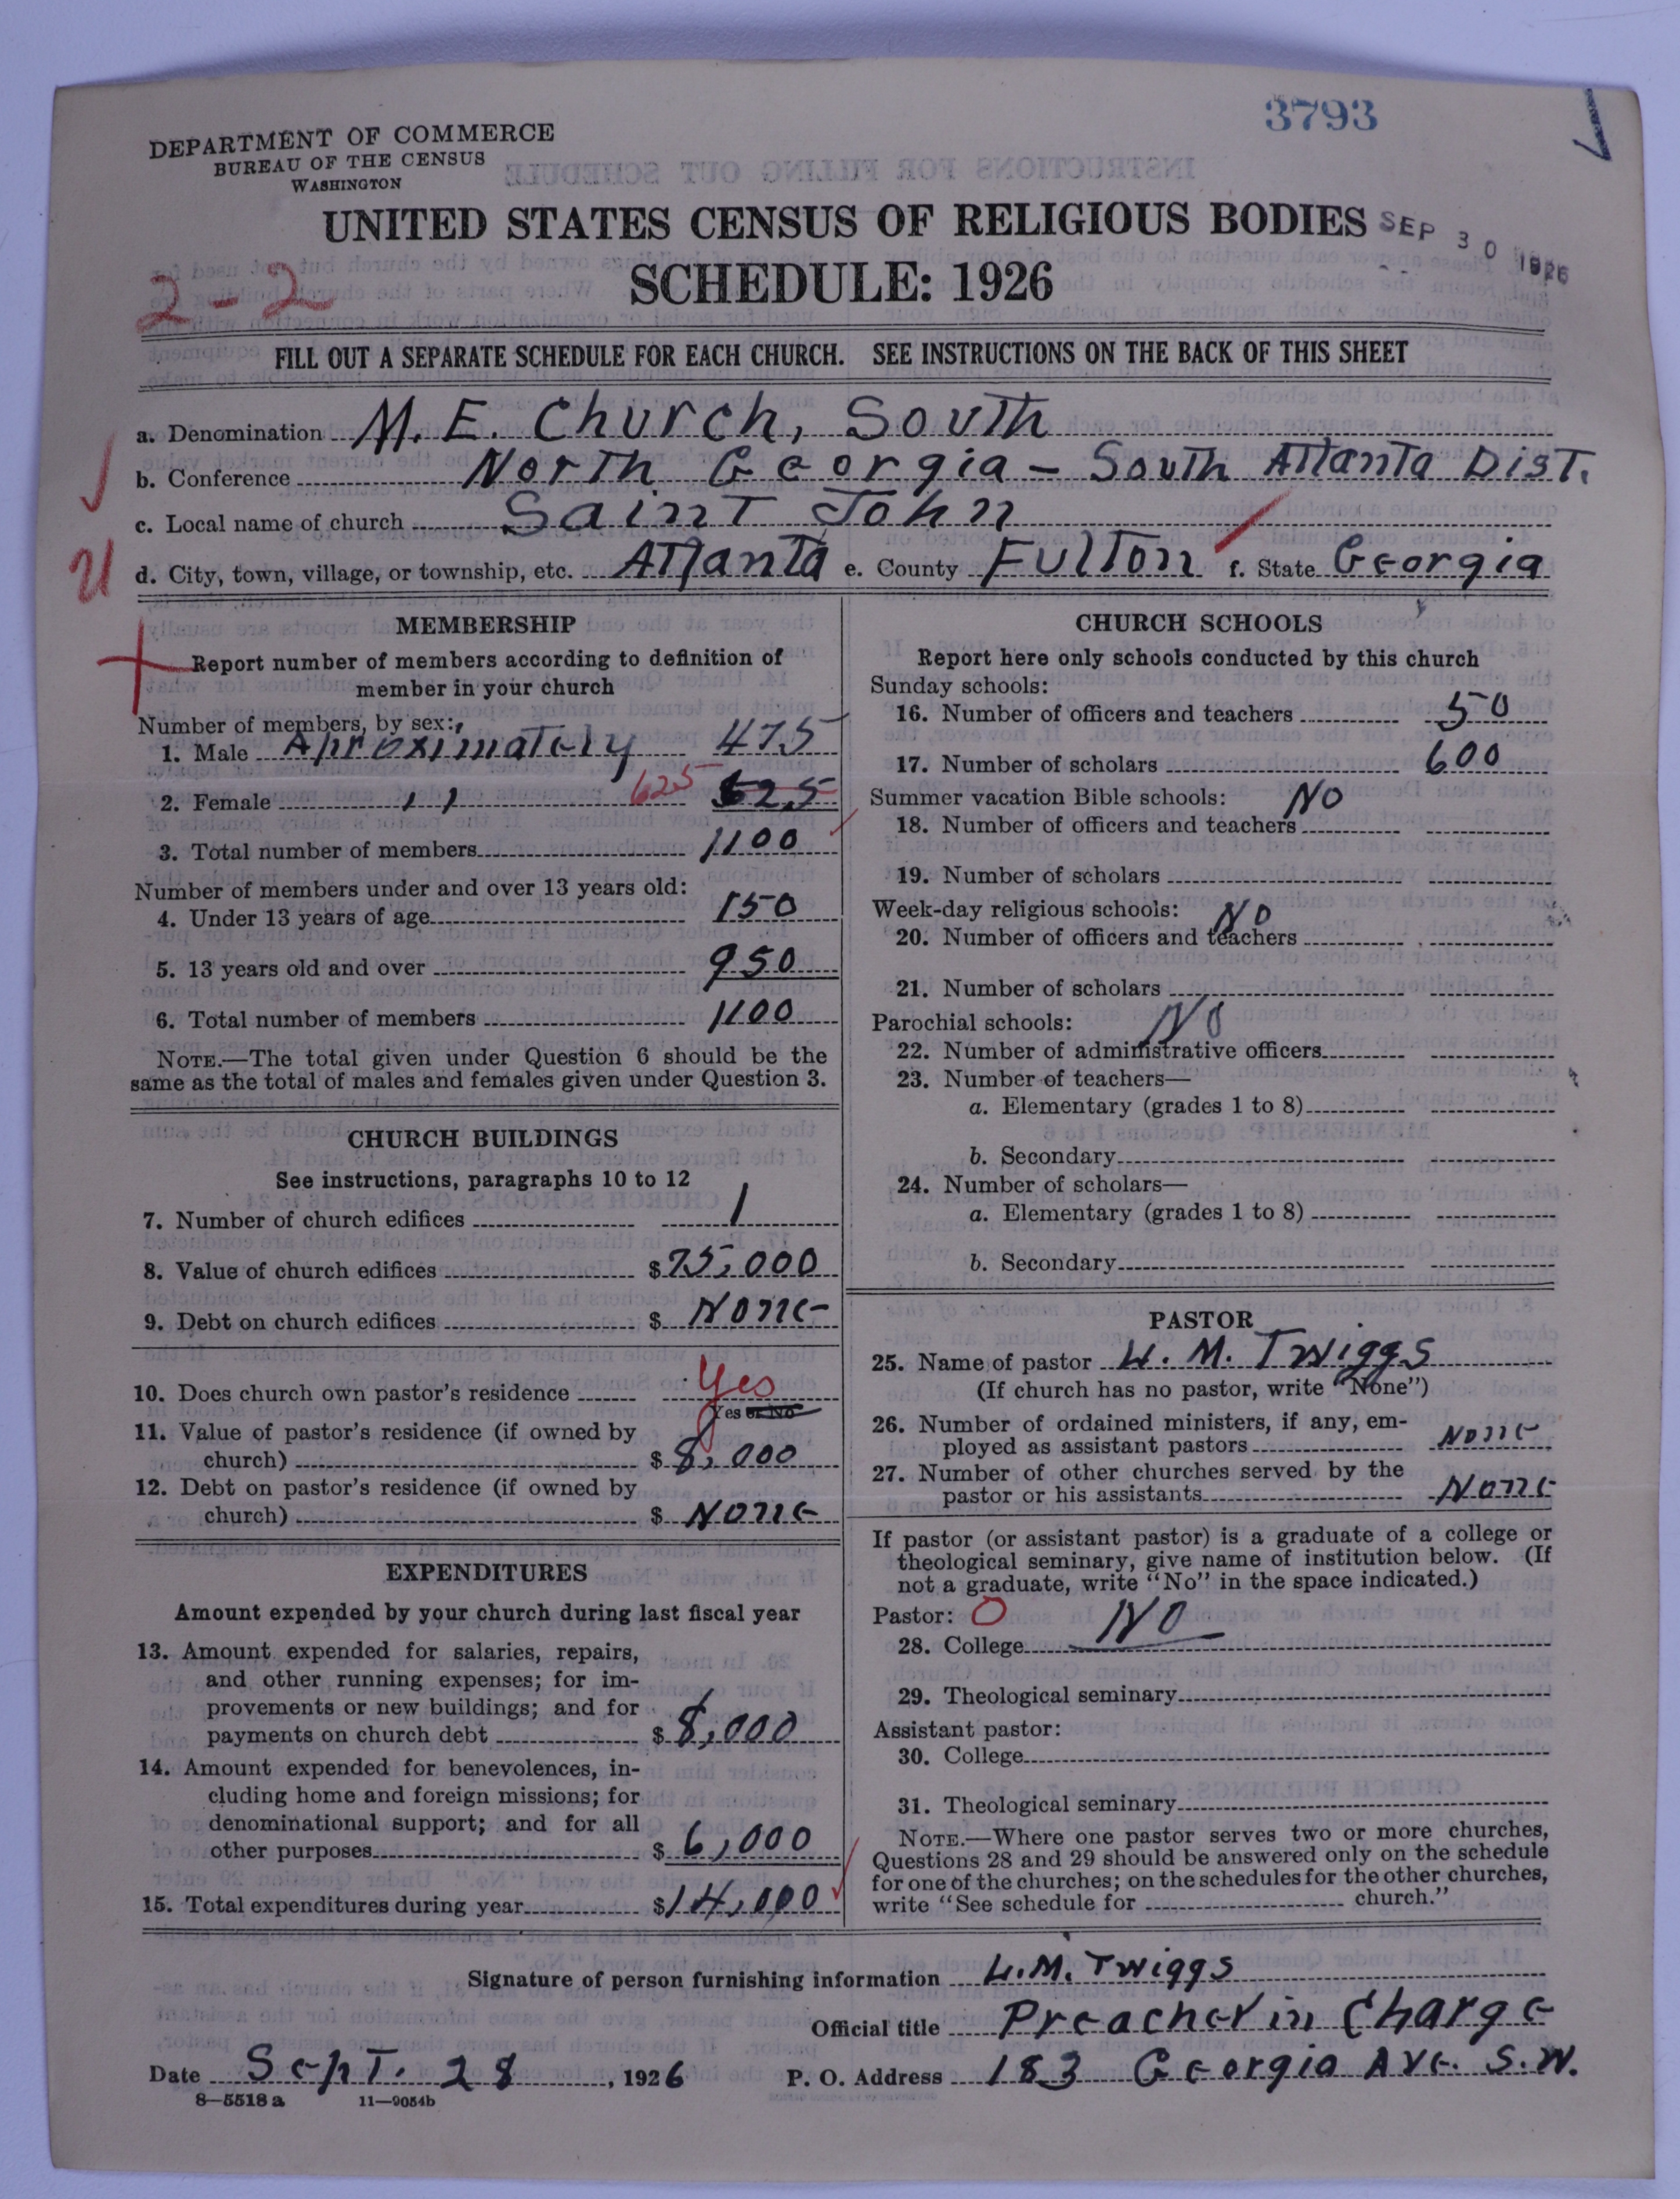 3793
DEPARTMENT OF COMMERCE
BUREAU OF THE CENSUS
WASHINGTON
UNITED STATES CENSUS OF RELIGIOUS BODIES
SEP 30 1926
SCHEDULE: 1926
2-2
FILL OUT A SEPARATE SCHEDULE FOR EACH CHURCH. SEE INSTRUCTIONS ON THE BACK OF THIS SHEET
a. Denomination M. E. Church, South
b. Conference North Georgia - South Atlanta Dist.
c. Local name of church Saint John
d. City, town, village, or township, etc. Atlanta e. County Fulton f. State Georgia
MEMBERSHIP
Report number of members according to definition of
member in your church
Number of members, by sex:
1. Male Aproximately 475
2. Female " 625 625
3. Total number of members 1100
Number of members under and over 13 years old:
4. Under 13 years of age 150
5. 13 years old and over 950
6. Total number of members 1100
NOTE.—The total given under Question 6 should be the
same as the total of males and females given under Question 3.
CHURCH BUILDINGS
See instructions, paragraphs 10 to 12
7. Number of church edifices 1
8. Value of church edifices $75,000
9. Debt on church edifices $ None
10. Does church own pastor's residence Yes
Yes or No
11. Value of pastor's residence (if owned by
church) $ 8,000
12. Debt on pastor's residence (if owned by
church) $ None
EXPENDITURES
Amount expended by your church during last fiscal year
13. Amount expended for salaries, repairs,
and other running expenses; for im-
provements or new buildings; and for
payments on church debt $ 8,000
14. Amount expended for benevolences, in-
cluding home and foreign missions; for
denominational support; and for all
other purposes $ 6,000
15. Total expenditures during year $14,000
CHURCH SCHOOLS
Report here only schools conducted by this church
Sunday schools:
16. Number of officers and teachers 50
17. Number of scholars 600
Summer vacation Bible schools: No
18. Number of officers and teachers
19. Number of scholars
Week-day religious schools: No
20. Number of officers and teachers
21. Number of scholars
Parochial schools: No
22. Number of administrative officers
23. Number of teachers—
a. Elementary (grades 1 to 8)
b. Secondary
24. Number of scholars—
a. Elementary (grades 1 to 8)
b. Secondary
PASTOR
25. Name of pastor L. M. Twiggs
(If church has no pastor, write "None")
26. Number of ordained ministers, if any, em-
ployed as assistant pastors None
27. Number of other churches served by the
pastor or his assistants None
If pastor (or assistant pastor) is a graduate of a college or
theological seminary, give name of institution below. (If
not a graduate, write "No" in the space indicated.)
Pastor: O
28. College No
29. Theological seminary
Assistant pastor:
30. College
31. Theological seminary
NOTE.—Where one pastor serves two or more churches,
Questions 28 and 29 should be answered only on the schedule
for one of the churches; on the schedules for the other churches,
write "See schedule for church."
Signature of person furnishing information L. M. Twiggs
Official title Preacher in Charge
Date Sept. 28, 1926 P. O. Address 183 Georgia Ave. S.W.
8—5518 a 11—9054b